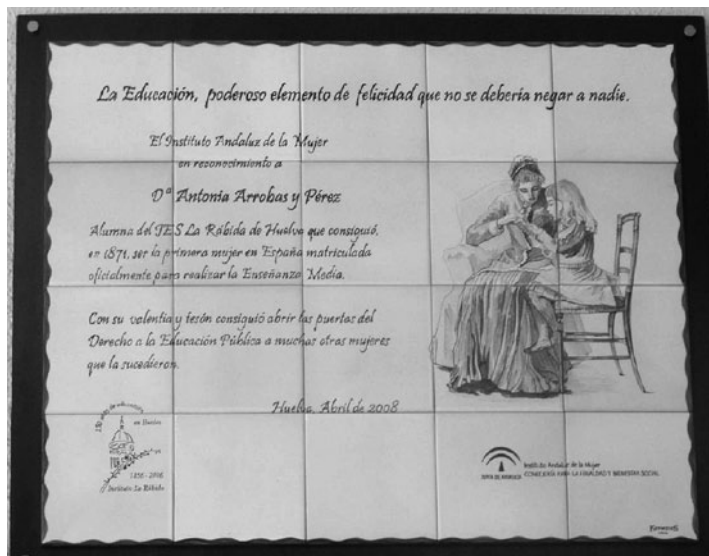 La Educación, poderoso elemento de felicidad que no se debería negar a nadie.
El Instituto Andaluz de la Mujer
en reconocimiento a
Dª Antonia Arrobas y Pérez
Alumna del IES La Rábida de Huelva que consiguió,
en 1871, ser la primera mujer en España matriculada
oficialmente para realizar la Enseñanza Media.
Con su valentía y tesón consiguió abrir las puertas del
Derecho a la Educación Pública a muchas otras mujeres
que la sucedieron.
Huelva, Abril de 2008
150 años de educación
en Huelva
1856 - 2006
Instituto La Rábida
JUNTA DE ANDALUCIA
Instituto Andaluz de la Mujer
CONSEJERÍA PARA LA IGUALDAD Y BIENESTAR SOCIAL